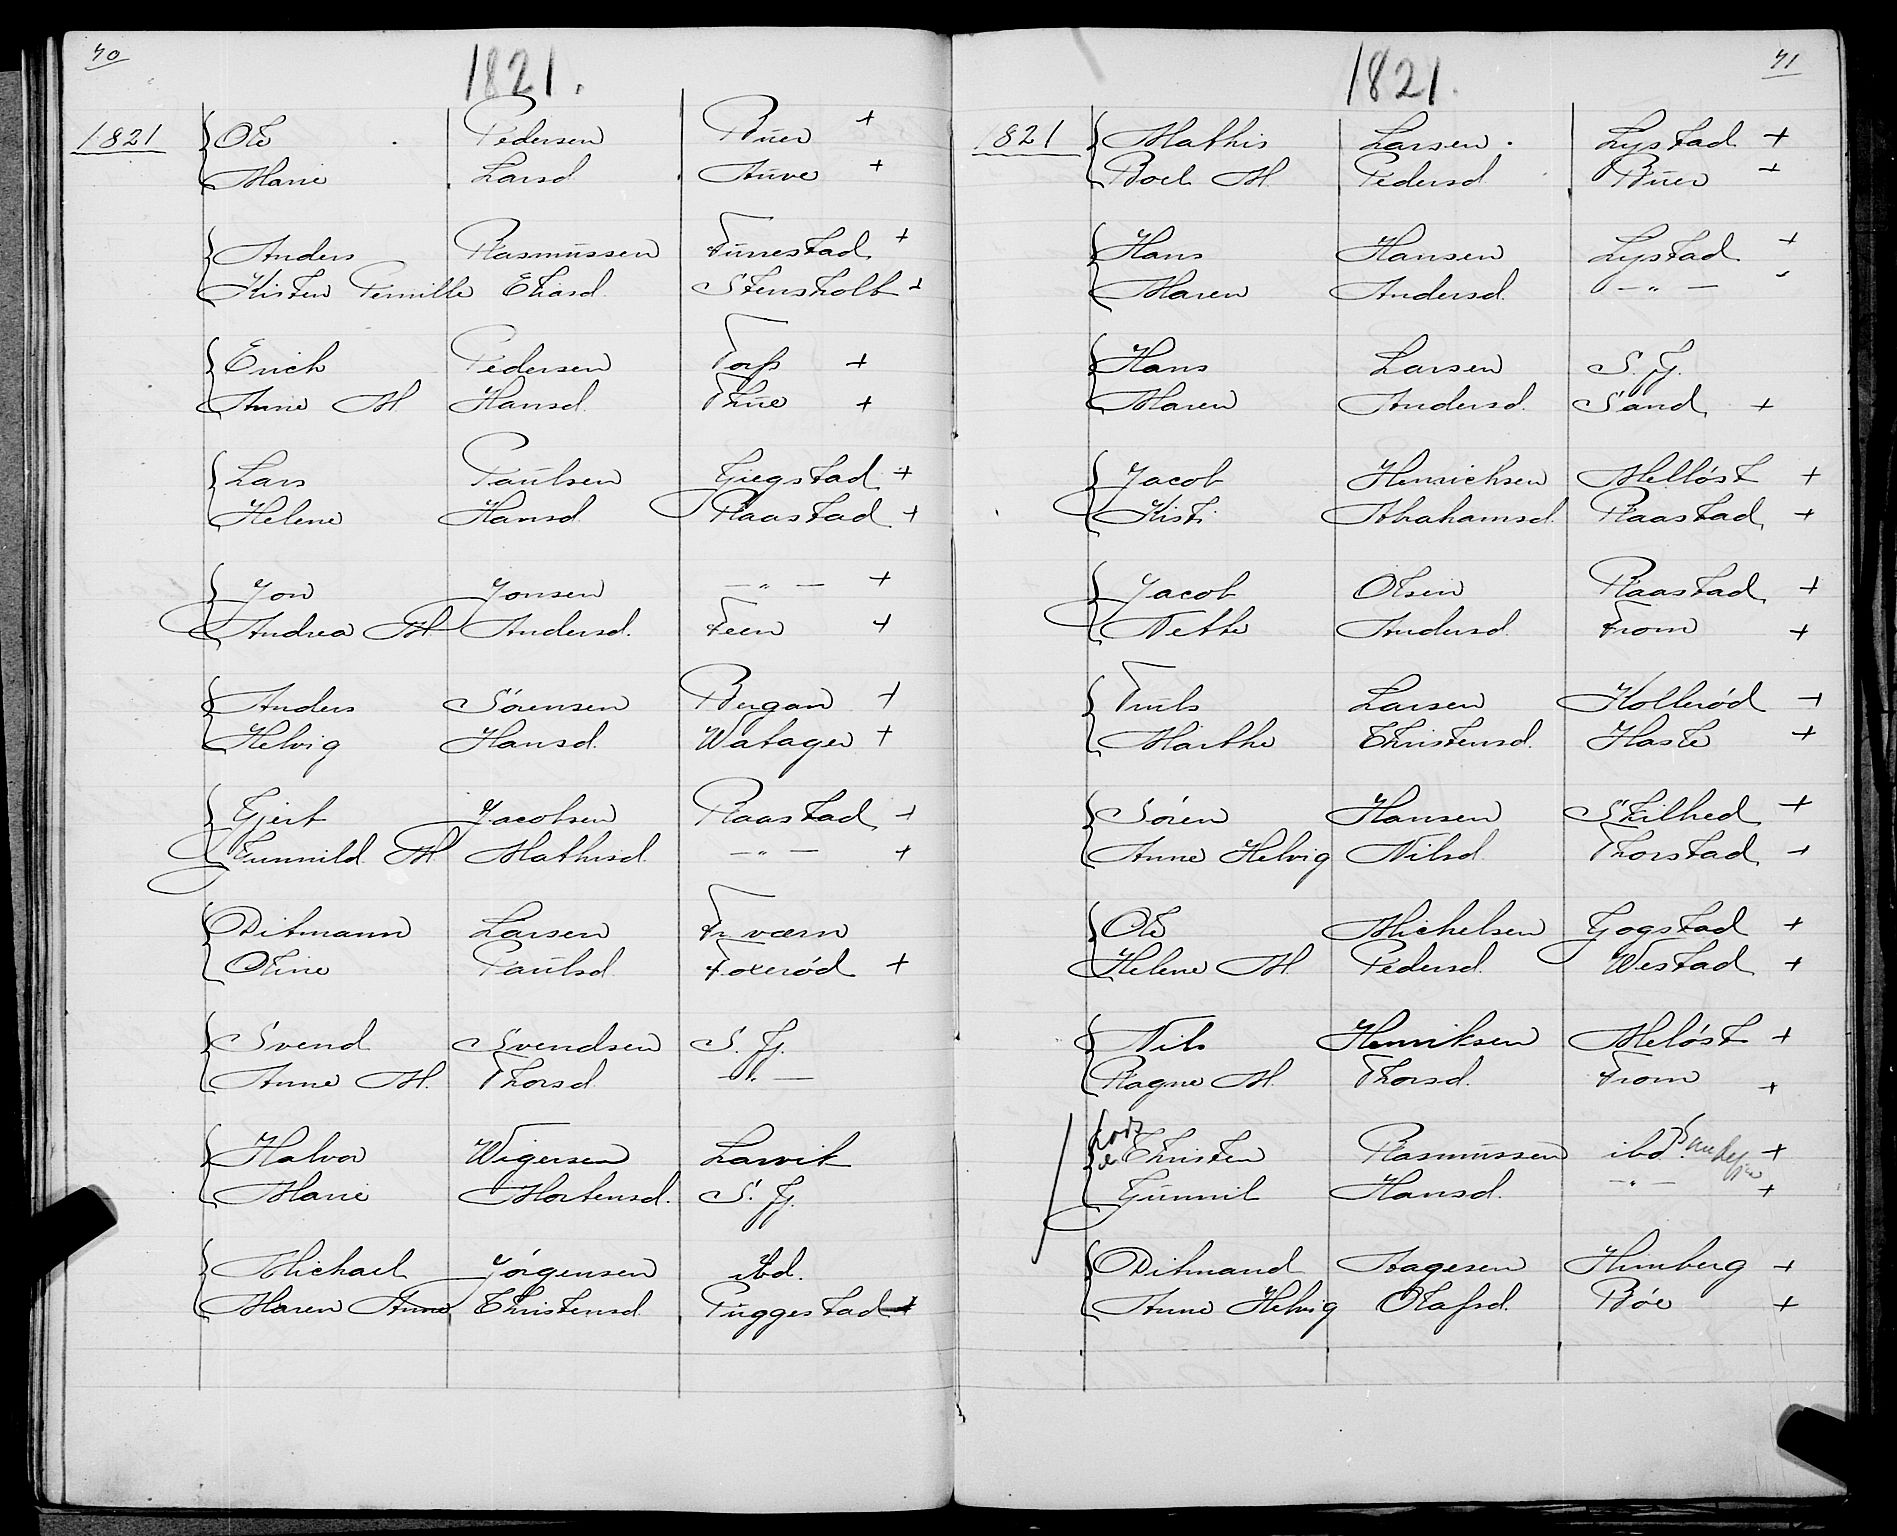 70
1821.
1821 Ole Pedersen Buer +
Marie Larsd Auve +
Anders Rasmussen Furrestad +
Kisten Pernille Eliasd. Stensholt +
Erich Pedersen Torp +
Anne M Hansd. Thue +
Lars Paulsen Giegstad +
Helene Hansd Raastad +
Jon Jonsen — " — +
Andrea M Andersd. Feen +
Anders Sörensen Bergan +
Helvig Hansd. Watager +
Gjert Jacobsen Raastad +
Gunnild M. Mathisd. — " — +
Ditmann Larsen Fr værn
Oline Paulsd Foxerød +
Svend Svendsen S. Fj.
Anne M. Thorsd. — " —
Halvor Wigersen Larvik
Marie Mortensd. S. Fj.
Michael Jörgensen ibd.
Maren Anne Christensd. Puggestad +
71
1821.
1821 Mathis Larsen. Lystad +
Boel M Pedersd. Buer +
Hans Hansen Lystad +
Maren Andersd. — " —
Hans Larsen S. Fj.
Maren Andersd. Sand +
Jacob Henrichsen Melløst +
Kisti Abrahamsd. Raastad +
Jacob Olsen Raastad +
Nethe Andersd. From +
Truls Larsen Kollerød +
Marthe Christensd. Hasle +
Sören Hansen Skilbred +
Anne Helvig Nilsd. Thorstad +
Ole Michelsen Gogstad +
Helene M. Pedersd. Westad +
Nils Henriksen Meløst +
Ragne M. Thorsd. From +
Christen Rasmussen ibd. +
Gunnil Hansd. — " — +
Ditmand Aagesen Himberg +
Anne Helvig Olafsd. Böe +